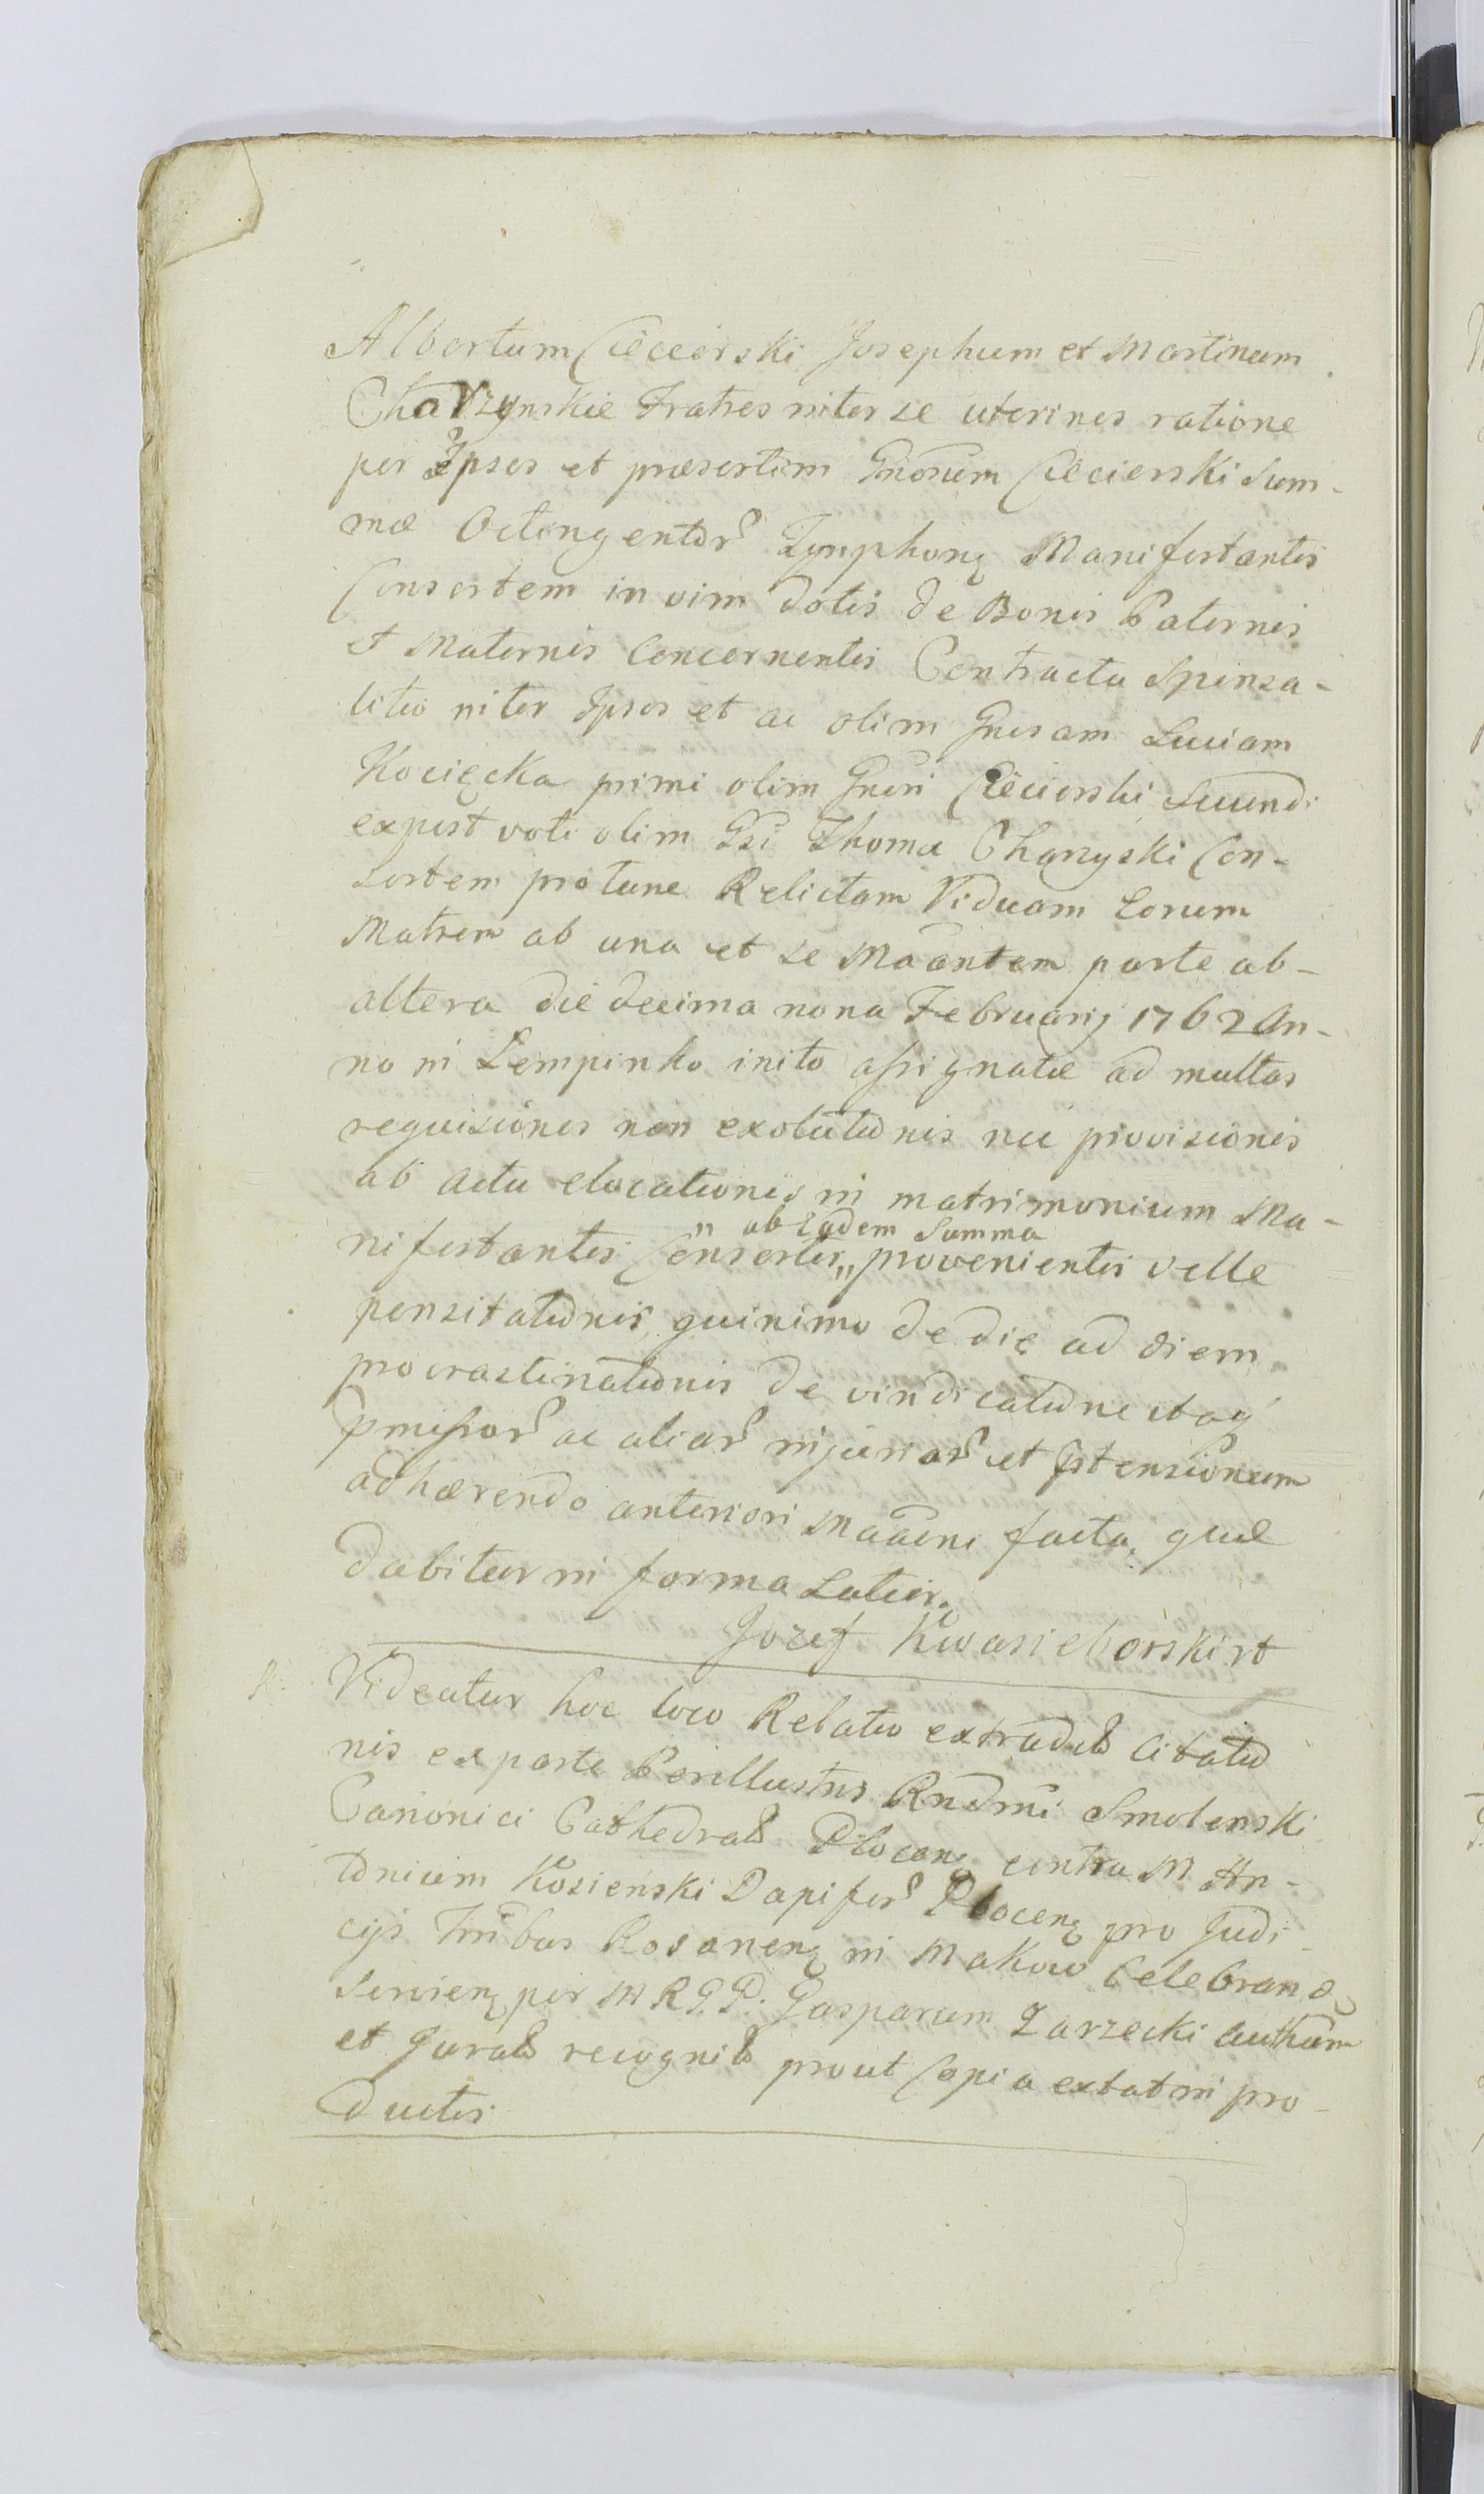 Albertum Ciecierski Josephum et Martinum
Charzynskie Fratres inter se uterinos ratione
per Ipsos et præsertim Gnosum Ciecierski Sum-
mæ Octingentor Tynphonę Manifestantis
Consortem in vim dotis de Bonis Paternis
et Maternis Concernentis Contractu Sponsa-
litio inter Ipsos et ac olim Gnosam Luciam
Kocięcka primi olim Gnosi Ciecierski Secundi
expost voti olim Gsi Thoma Charzyski Con-
sortem protunc Relictam Viduam Eorum
Matrem ab una et se Maantem parte ab-
altera die decima nona Februarij 1762 An-
no in Lempinko inito assignatæ ad multas
requisiones non exolutionis nec provisionis
ab actu elocationis in matrimonium Ma-
nifestantis Consortis „ ab Eadem Summa „ provenientis velle
pensitationis quinimo de die ad diem
procrastinationis de vindicatione itaq
pmissor ac aliar injuriar et ptensionum
adhærendo anteriori Maaõni facta, quæ
dabitur in forma Latior.
Jozef Kwasieborski rt
R: Videatur hoc loco Relatio extradit Citatio
nis ex parte Perillustris Rndmi Smolenski
Canonici Cathedral Plocenę contra M. An-
tonium Kosienski Dapifer Plocenę pro Judi-
cijs Tribus Rosanenę in Makow Celebrandę
Servienę per M R G P. Gasparum Zarzecki Authum
et Jurat recognit prout Copia extat in pro-
ductis